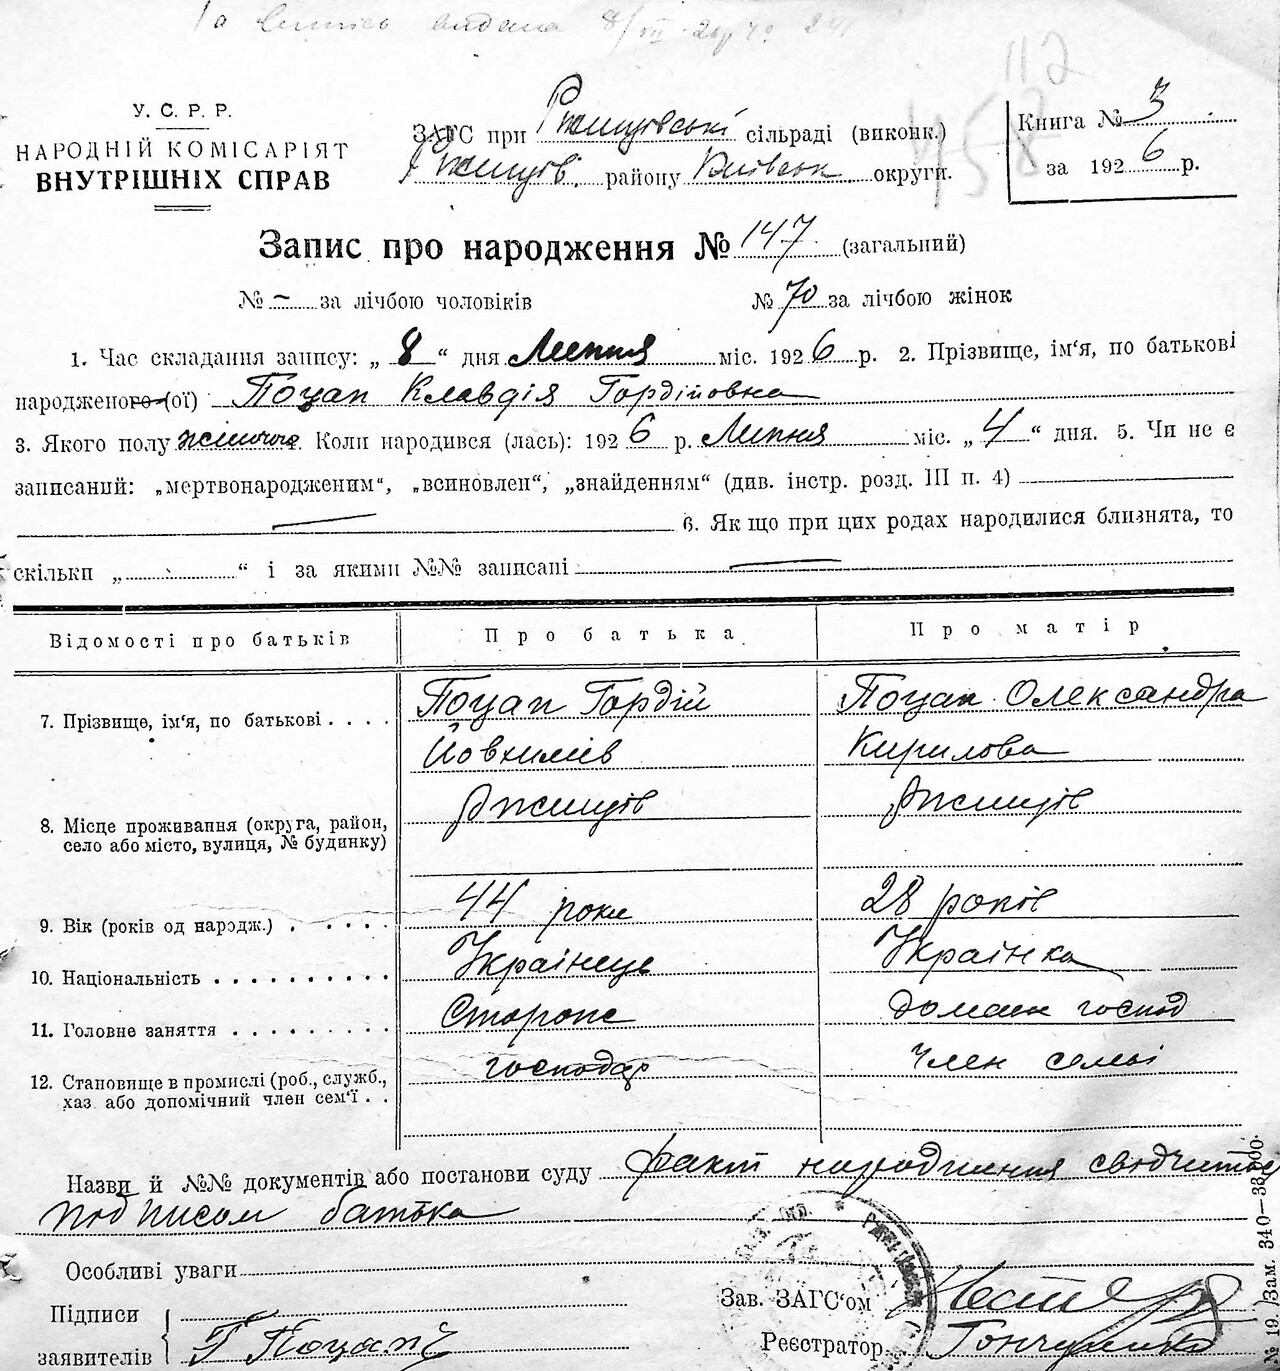 112
458
У. С. Р. Р.
НАРОДНІЙ КОМІСАРІЯТ
ВНУТРІШНІХ СПРАВ
ЗАГС при Ржищівські сільраді (виконк.)
Ржищів. району Київськ округи.
Книга № 3
за 1926 р.
Запис про народження № 147 (загальний)
№ – за лічбою чоловіків № 70 за лічбою жінок
1. Час складання запису: „ 8 “ дня Липня міс. 1926 р. 2. Прізвище, ім‘я, по батькові
народженого (ої) Поцап Клавдія Гордійовна
3. Якого полу жіночого Коли народився (лась): 1926 р. Липня міс. „ 4 “ дня. 5. Чи не є
записаний: „мертвонародженим“, „всиновлен“, „знайденням“ (див. інстр. розд. III п. 4)
6. Якщо при цих родах народилися близнята, то
скільки „ “ і за якими №№ записані
Відомості про батьків Про батька Про матір
7. Прізвище, ім‘я, по батькові Поцап Гордій Поцап Олександра
Йовхимів Кирилова
8. Місце проживання (округа, район, село або місто, вулиця, № будинку) Ржищів Ржищів
9. Вік (років од народж.) 44 роки 28 років
10. Національність Украінець Украінка
11. Головне заняття домашн господ
12. Становище в промислі (роб., служб., хаз. або допомічний член сем‘ї господар член семьі
Назви й №№ документів або постанови суду факт народження свідчиться
подписом батька
Особливі уваги
Підписи
заявителів Г Поцап
Зав. ЗАГС‘ом
Реєстратор Гончаренко
№ 19. Зам. 340—33.000.